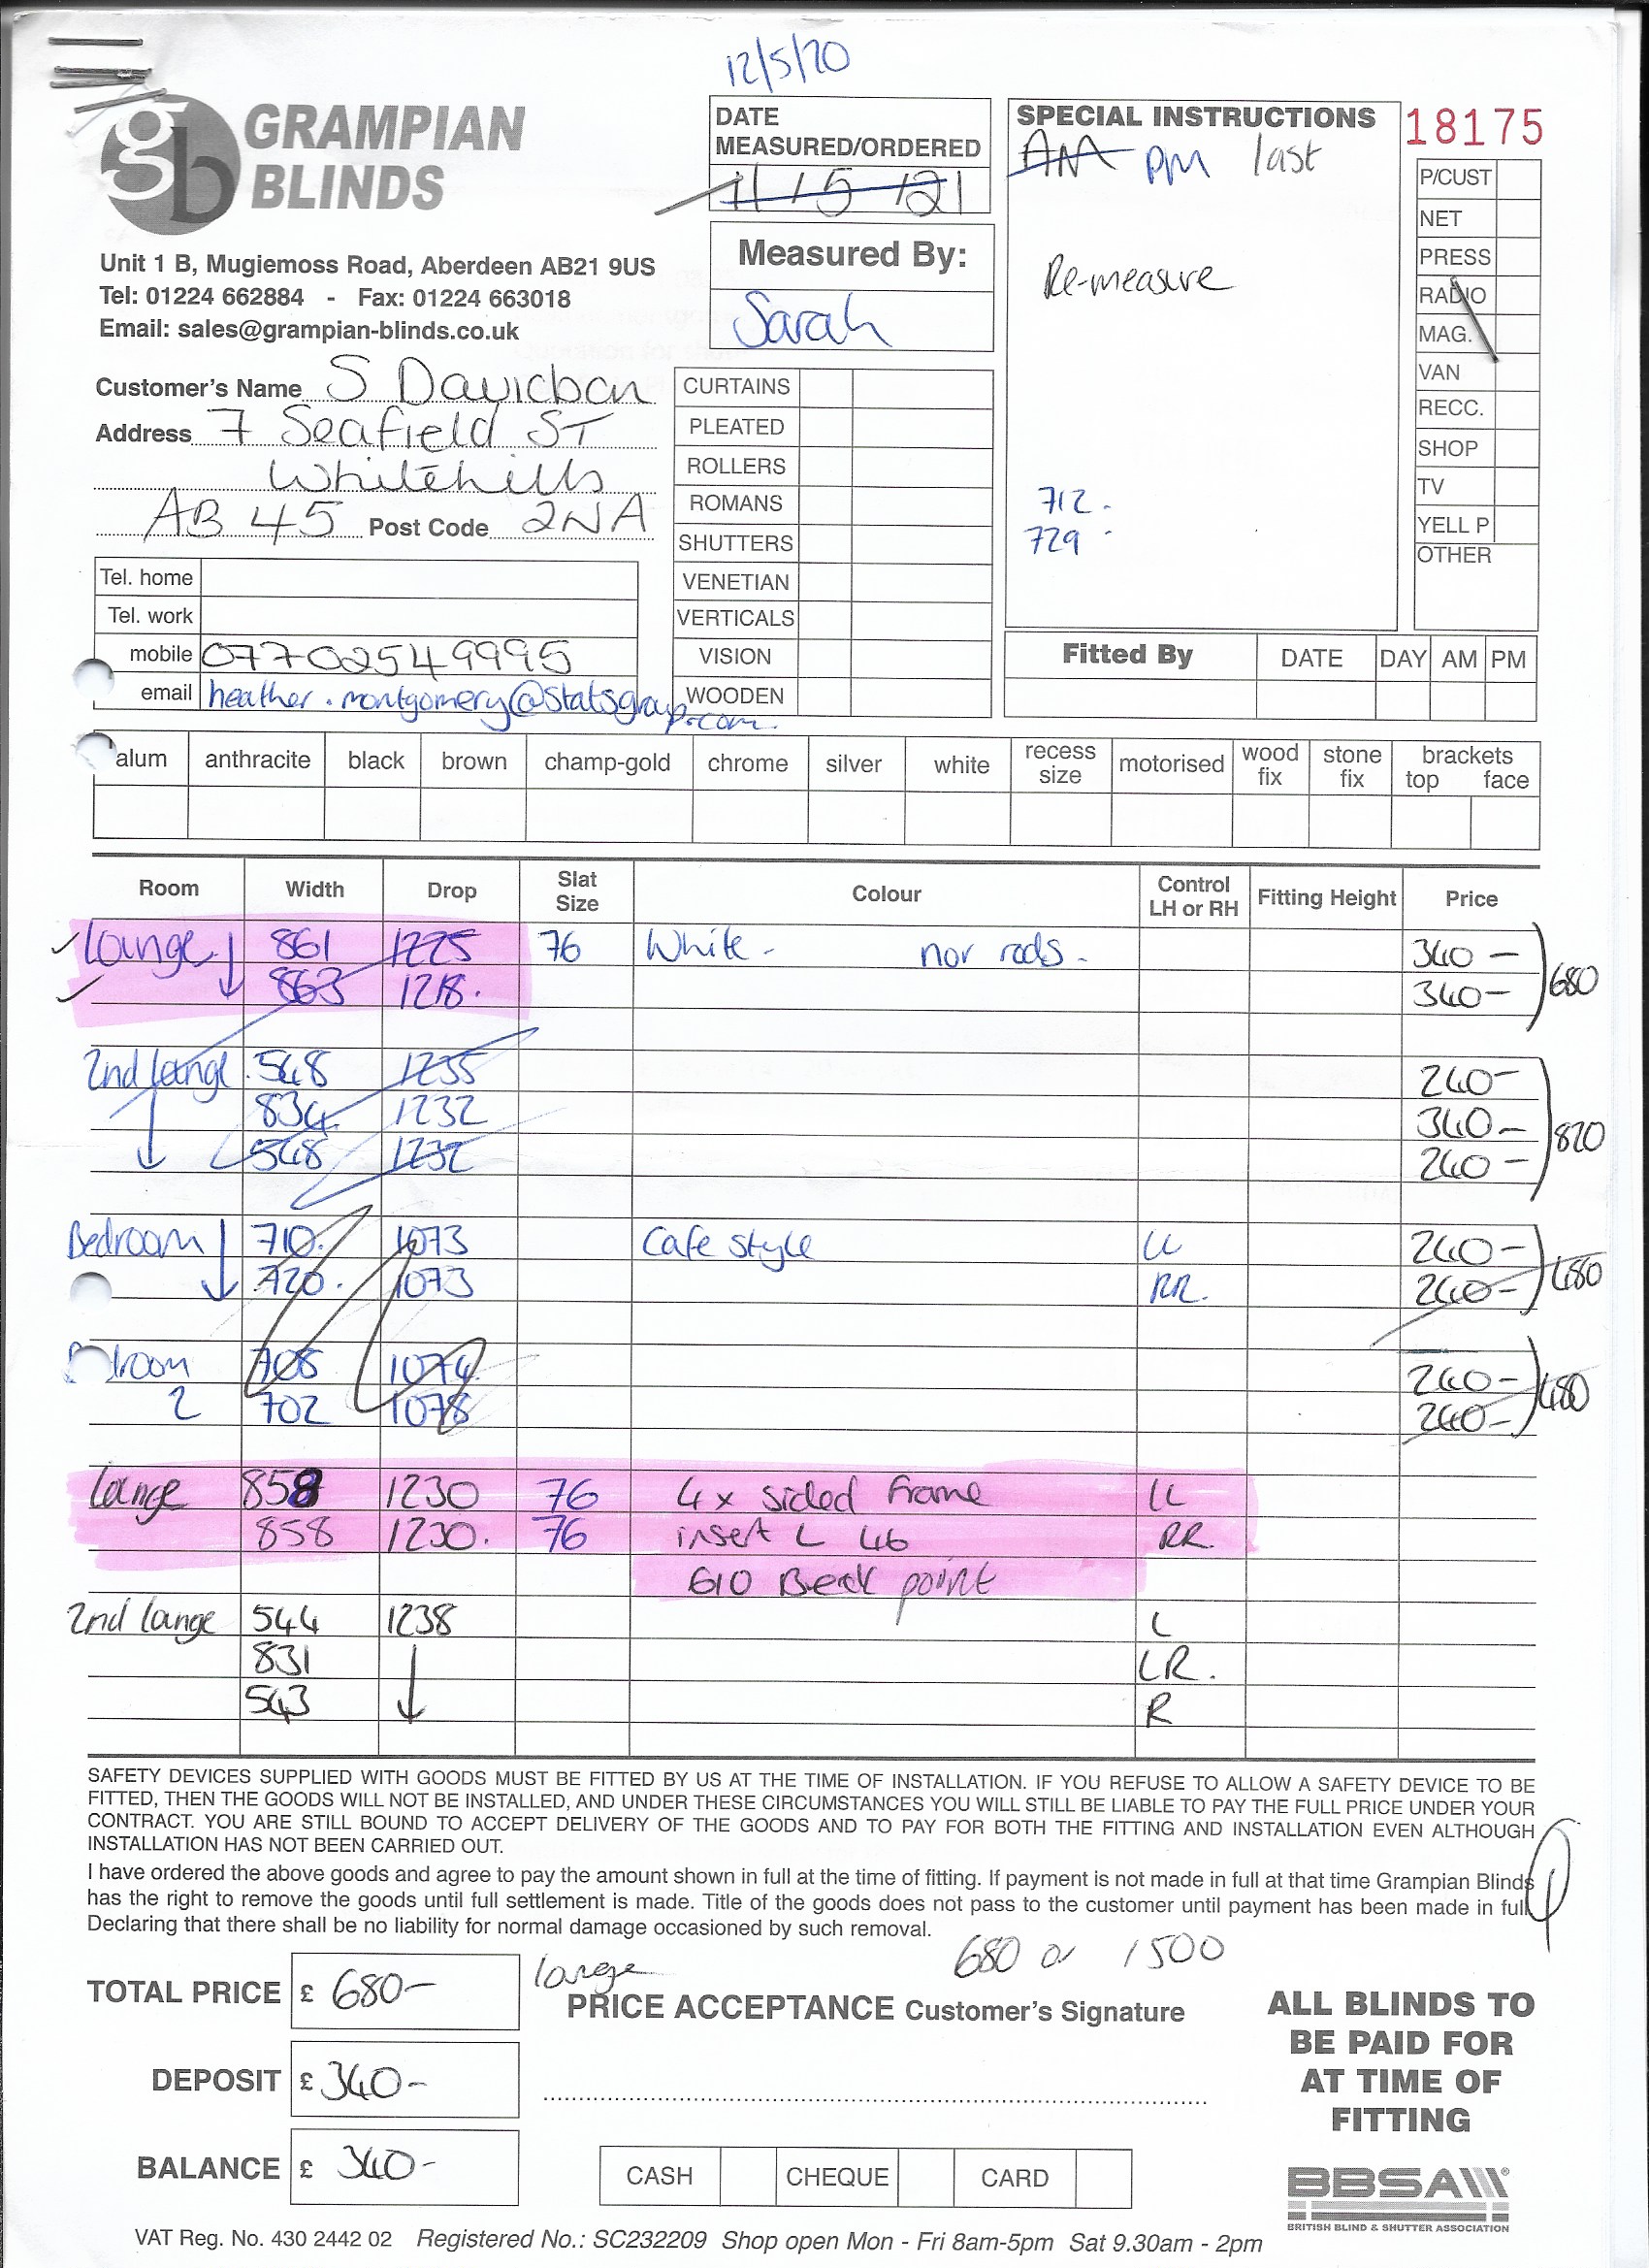 12/5/20
GRAMPIAN
BLINDS
gb
Unit 1 B, Mugiemoss Road, Aberdeen AB21 9US
Tel: 01224 662884 - Fax: 01224 663018
Email: sales@grampian-blinds.co.uk
DATE
MEASURED/ORDERED
11/5/21
Measured By:
Sarah
SPECIAL INSTRUCTIONS
AM pm last
Re-measure
712.
729
18175
P/CUST
NET
PRESS
RADIO
MAG.
VAN
RECC.
SHOP
TV
YELL P
OTHER
Customer's Name S Davidson
Address 7 Seafield ST
Whitehills
AB 45 Post Code 2NA
Tel. home
Tel. work
mobile 07702549995
email heather.montgomery@statsgroup.com
CURTAINS
PLEATED
ROLLERS
ROMANS
SHUTTERS
VENETIAN
VERTICALS
VISION
WOODEN
Fitted By DATE DAY AM PM
alum anthracite black brown champ-gold chrome silver white recess size motorised wood fix stone fix brackets top face
Room Width Drop Slat Size Colour Control LH or RH Fitting Height Price
Lounge 861 1225 76 White - nor rods. 340 -
863 1218. 340 - 680
2nd lounge 548 1235 240 -
834 1232 340 - 820
548 1232 240 -
Bedroom 710. 1073 Cafe style LL 240 -
720. 1073 RR. 240 - 480
Bedroom 708 1074 240 -
2 702 1078 240 - 480
Lounge 858 1230 76 4x sided frame LL
858 1230. 76 insert L 46 RR.
610 Beck point
2nd lounge 544 1238 L
831 LR.
543 R
SAFETY DEVICES SUPPLIED WITH GOODS MUST BE FITTED BY US AT THE TIME OF INSTALLATION. IF YOU REFUSE TO ALLOW A SAFETY DEVICE TO BE
FITTED, THEN THE GOODS WILL NOT BE INSTALLED, AND UNDER THESE CIRCUMSTANCES YOU WILL STILL BE LIABLE TO PAY THE FULL PRICE UNDER YOUR
CONTRACT. YOU ARE STILL BOUND TO ACCEPT DELIVERY OF THE GOODS AND TO PAY FOR BOTH THE FITTING AND INSTALLATION EVEN ALTHOUGH
INSTALLATION HAS NOT BEEN CARRIED OUT.
I have ordered the above goods and agree to pay the amount shown in full at the time of fitting. If payment is not made in full at that time Grampian Blinds
has the right to remove the goods until full settlement is made. Title of the goods does not pass to the customer until payment has been made in full.
Declaring that there shall be no liability for normal damage occasioned by such removal.
680 or 1500
TOTAL PRICE £ 680- lounge
PRICE ACCEPTANCE Customer's Signature
DEPOSIT £ 340-
BALANCE £ 340-
CASH CHEQUE CARD
ALL BLINDS TO
BE PAID FOR
AT TIME OF
FITTING
BBSA
BRITISH BLIND & SHUTTER ASSOCIATION
VAT Reg. No. 430 2442 02 Registered No.: SC232209 Shop open Mon - Fri 8am-5pm Sat 9.30am - 2pm